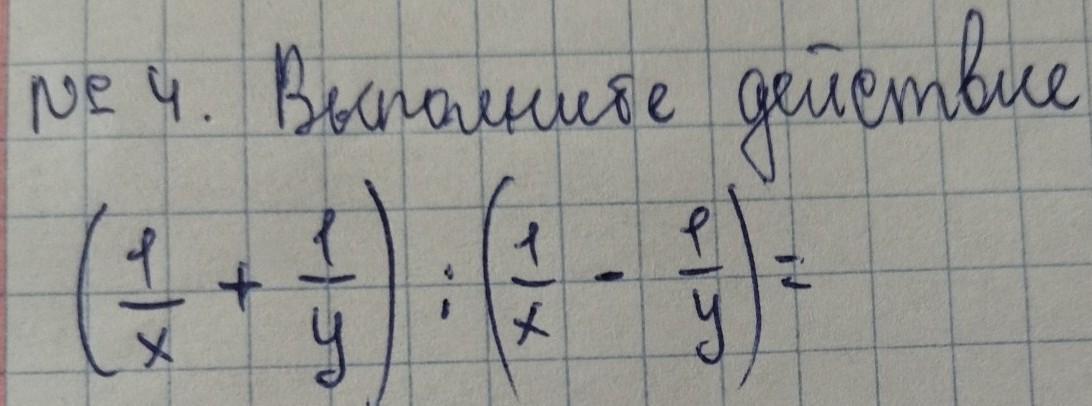 № 4. Выполните действие
(1/x + 1/y) : (1/x - 1/y) =